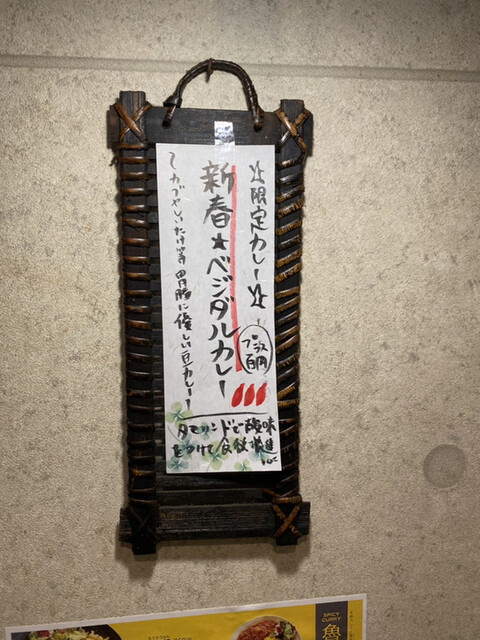 ☆限定カレー☆
新春★ベジダルカレー
プラス
百円
〜かぶやしいたけ等胃腸に優しい豆カレー〜
タマリンドで酸味
をつけて食欲増進
SPICY
CURRY
魚